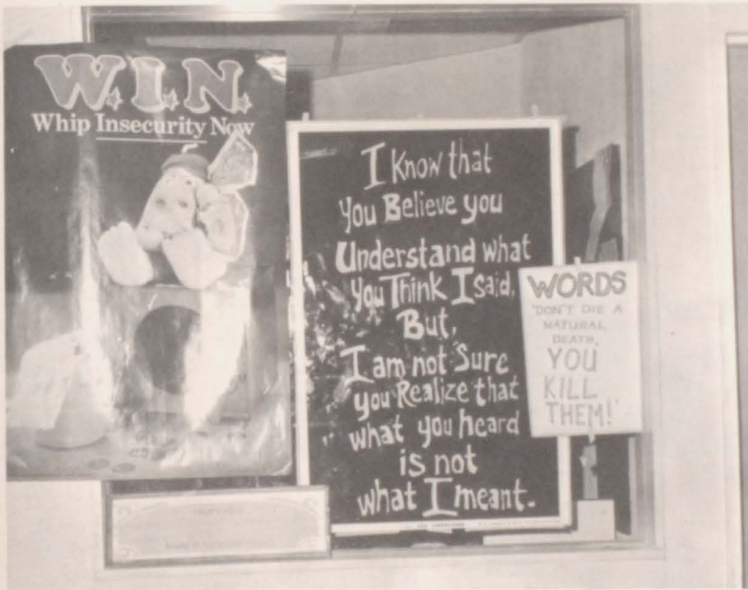 W.I.N.
Whip Insecurity Now
I Know that
You Believe you
Understand what
you Think I Said,
But,
I am not Sure
you Realize that
what you heard
is not
what I meant.
WORDS
"DON'T DIE A
NATURAL
DEATH,
YOU
KILL
THEM!"